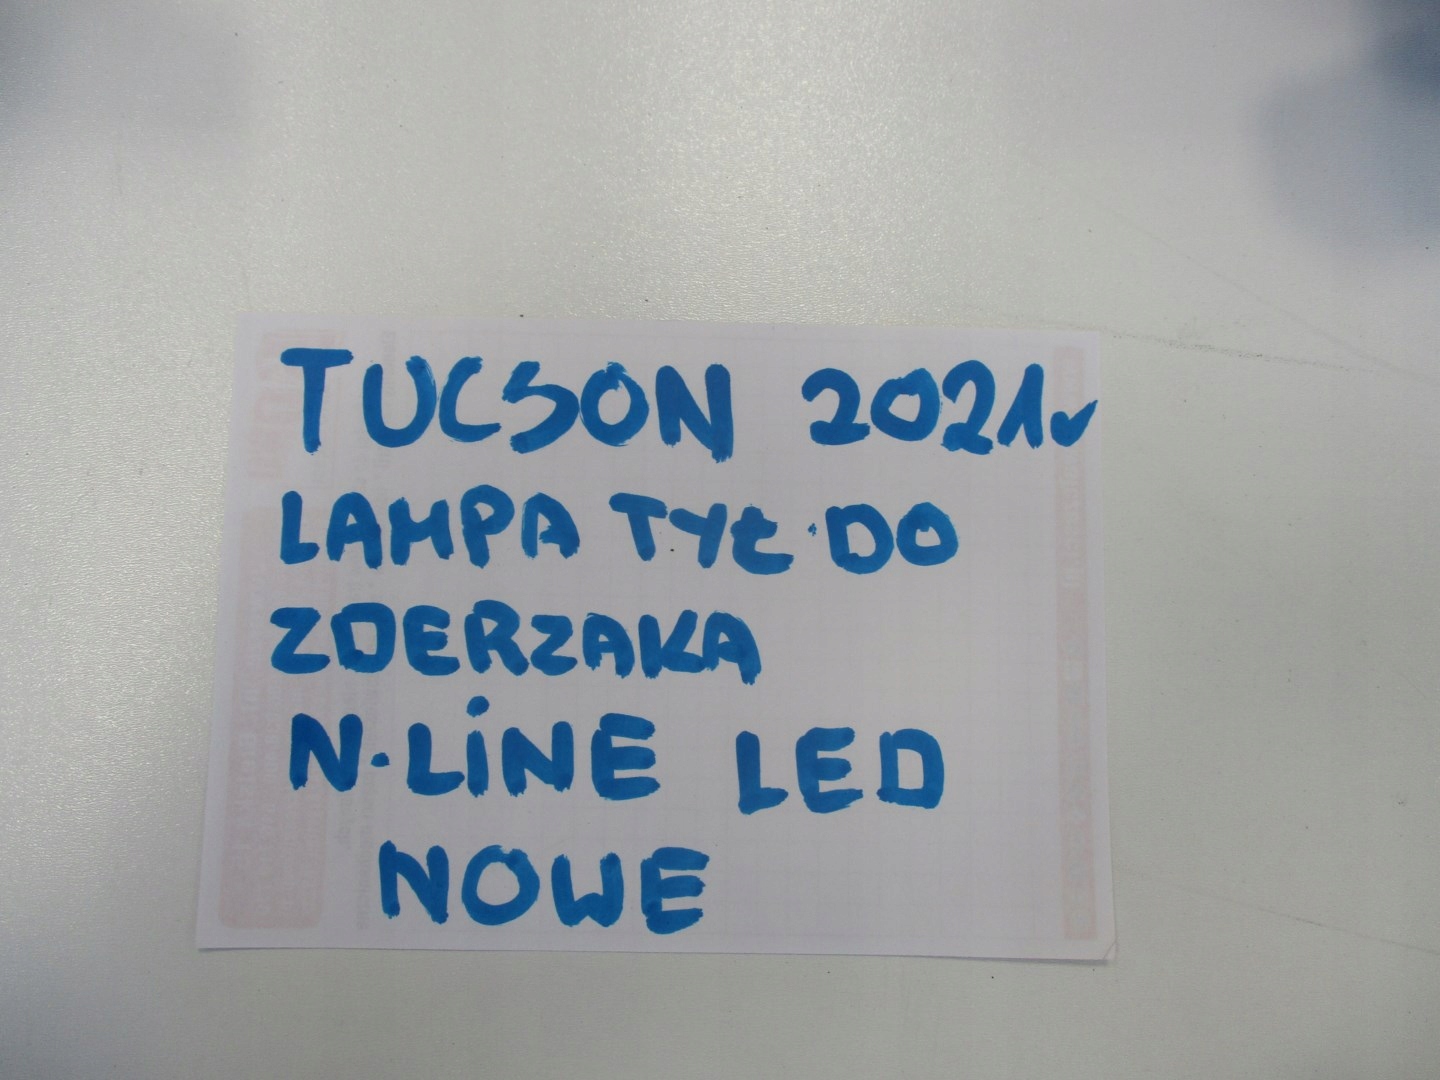 TUCSON 2021r
LAMPA TYŁ DO
ZDERZAKA
N-LiNE LED
NOWE